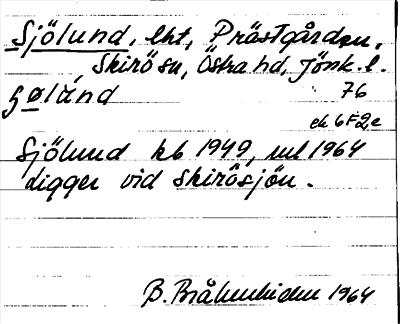 Sjölund, lht, Prästgården,
Skirö sn, Östra hd, Jönk. l.
ʃølánd 76
ek 6F2e
Sjölund kb 1949, nul 1964
Ligger vid Skirösjön.
B. 1964